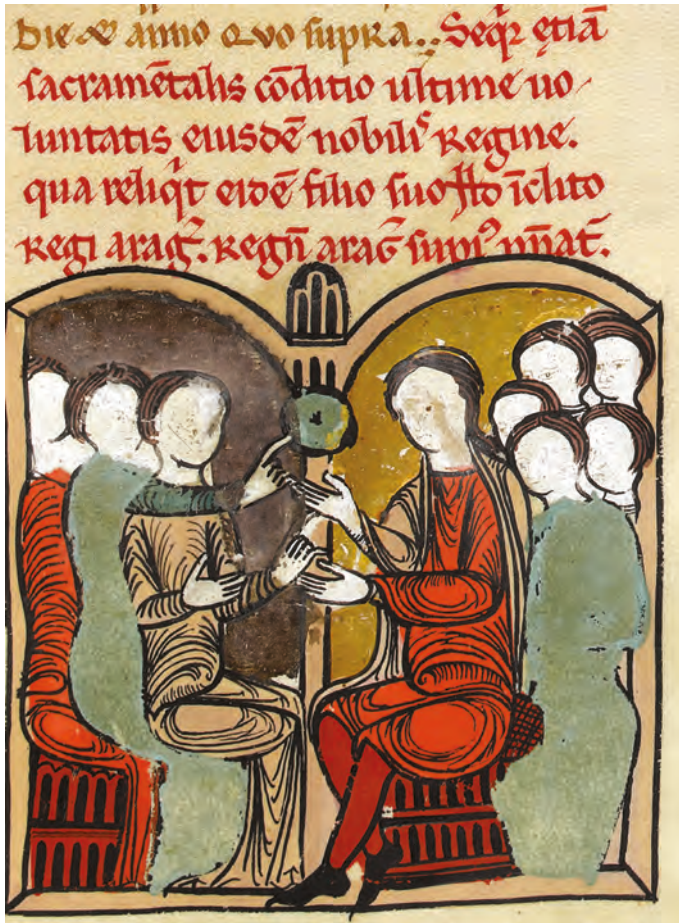 die & anno quo supra. Seqͬ etiā
sacramētalis cōditio ultime uo/
luntatis eiusdē nobilis Regine.
qua reliqͥt eidē filio suo īclito
Regi arag̃. Regñ arag̃